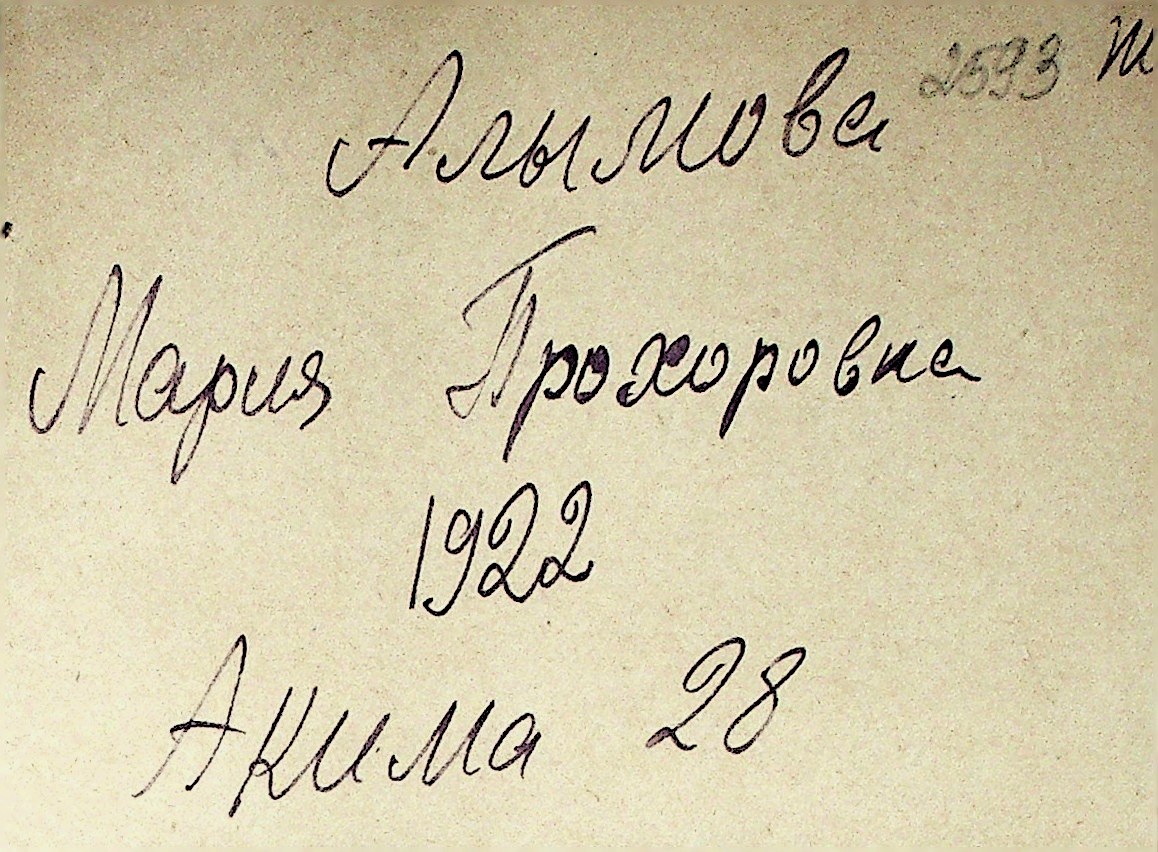 2593 Ж
Алымова
Мария Прохоровна
1922
Акима 28